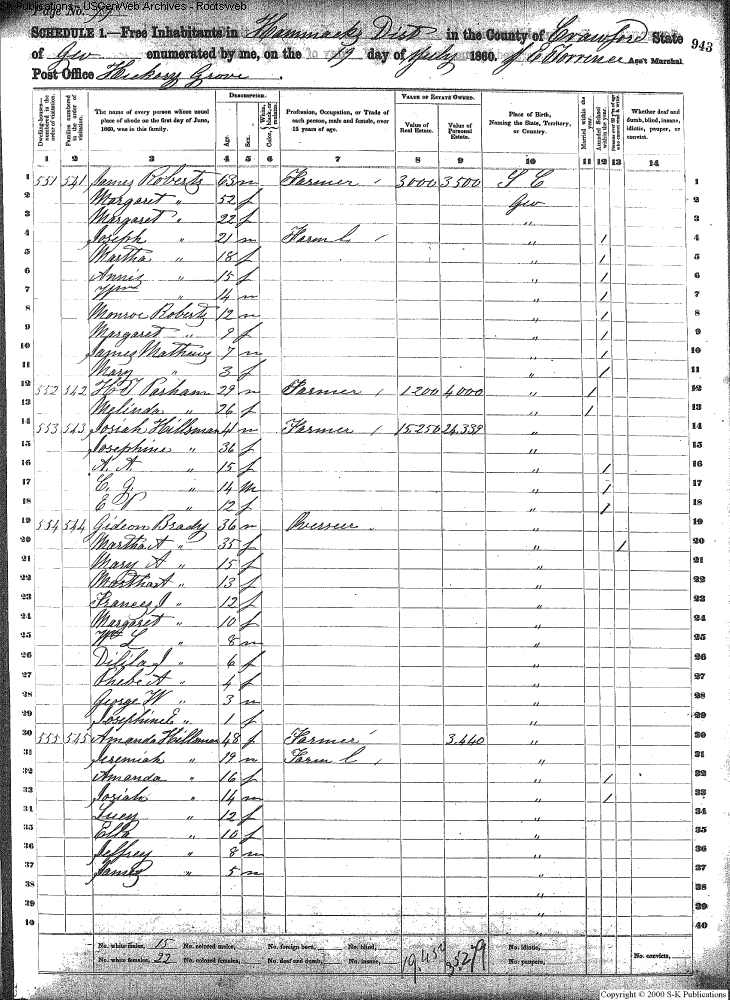 S-K Publications - USGenWeb Archives - Rootsweb
Page No. 79
SCHEDULE 1.—Free Inhabitants in Hammacks Dist in the County of Crawford State
of Geo enumerated by me, on the 19 day of July 1860. J E Torrence Ass't Marshal
943
Post Office Hickory Grove.
Dwelling-houses—numbered in the order of visitation.
Families numbered in the order of visitation.
The name of every person whose usual place of abode on the first day of June, 1860, was in this family.
DESCRIPTION.
Age.
Sex.
Color, White, black, or mulatto.
Profession, Occupation, or Trade of each person, male and female, over 15 years of age.
VALUE OF ESTATE OWNED.
Value of Real Estate.
Value of Personal Estate.
Place of Birth, Naming the State, Territory, or Country.
Married within the year.
Attended School within the year.
Persons over 20 y'rs of age who cannot read & write.
Whether deaf and dumb, blind, insane, idiotic, pauper, or convict.
1 2 3 4 5 6 7 8 9 10 11 12 13 14
1 551 541 James Roberts 63 m Farmer / 3000 3500 S C 1
2 Margaret " 52 f Geo 2
3 Margaret " 22 f " 3
4 Joseph " 21 m Farm L / " / 4
5 Martha " 18 f " / 5
6 Annis " 15 f " / 6
7 Wm " 14 m " / 7
8 Monroe Roberts 12 m " / 8
9 Margaret " 9 f " / 9
10 James Mathews 7 m " / 10
11 Mary " 3 f " / 11
12 552 542 H T Parham 29 m Farmer / 1200 4000 " / 12
13 Melinda " 26 f " / 13
14 553 543 Josiah Hillsman 41 m Farmer / 15250 24.339 " 14
15 Josephine " 36 f " 15
16 A. A. " 15 f " / 16
17 C. J. " 14 m " / 17
18 E P " 12 f " / 18
19 554 544 Gideon Brady 36 m Overseer " 19
20 Martha A " 35 f " / 20
21 Mary A " 15 f " 21
22 Martha A " 13 f " 22
23 Frances J " 12 f " 23
24 Margaret " 10 f " 24
25 Wm L " 8 m " 25
26 Dilila J " 6 f " 26
27 Phebe A " 4 f " 27
28 George W " 3 m " 28
29 Josephine E " 1 f " 29
30 555 545 Amanda Hillsman 48 f Farmer / 3.440 " 30
31 Jeremiah " 19 m Farm L / " 31
32 Amanda " 16 f " / 32
33 Josiah " 14 m " / 33
34 Lucy " 12 f " 34
35 Ella " 10 f " 35
36 Jeffrey " 8 m " 36
37 James " 5 m " 37
38 " 38
39 " 39
40 " 40
No. white males, 15 No. colored males, No. foreign born, No. blind, 19.450 35.279 No. idiotic,
No. white females, 22 No. colored females, No. deaf and dumb, No. insane, No. paupers, No. convicts,
Copyright © 2000 S-K Publications